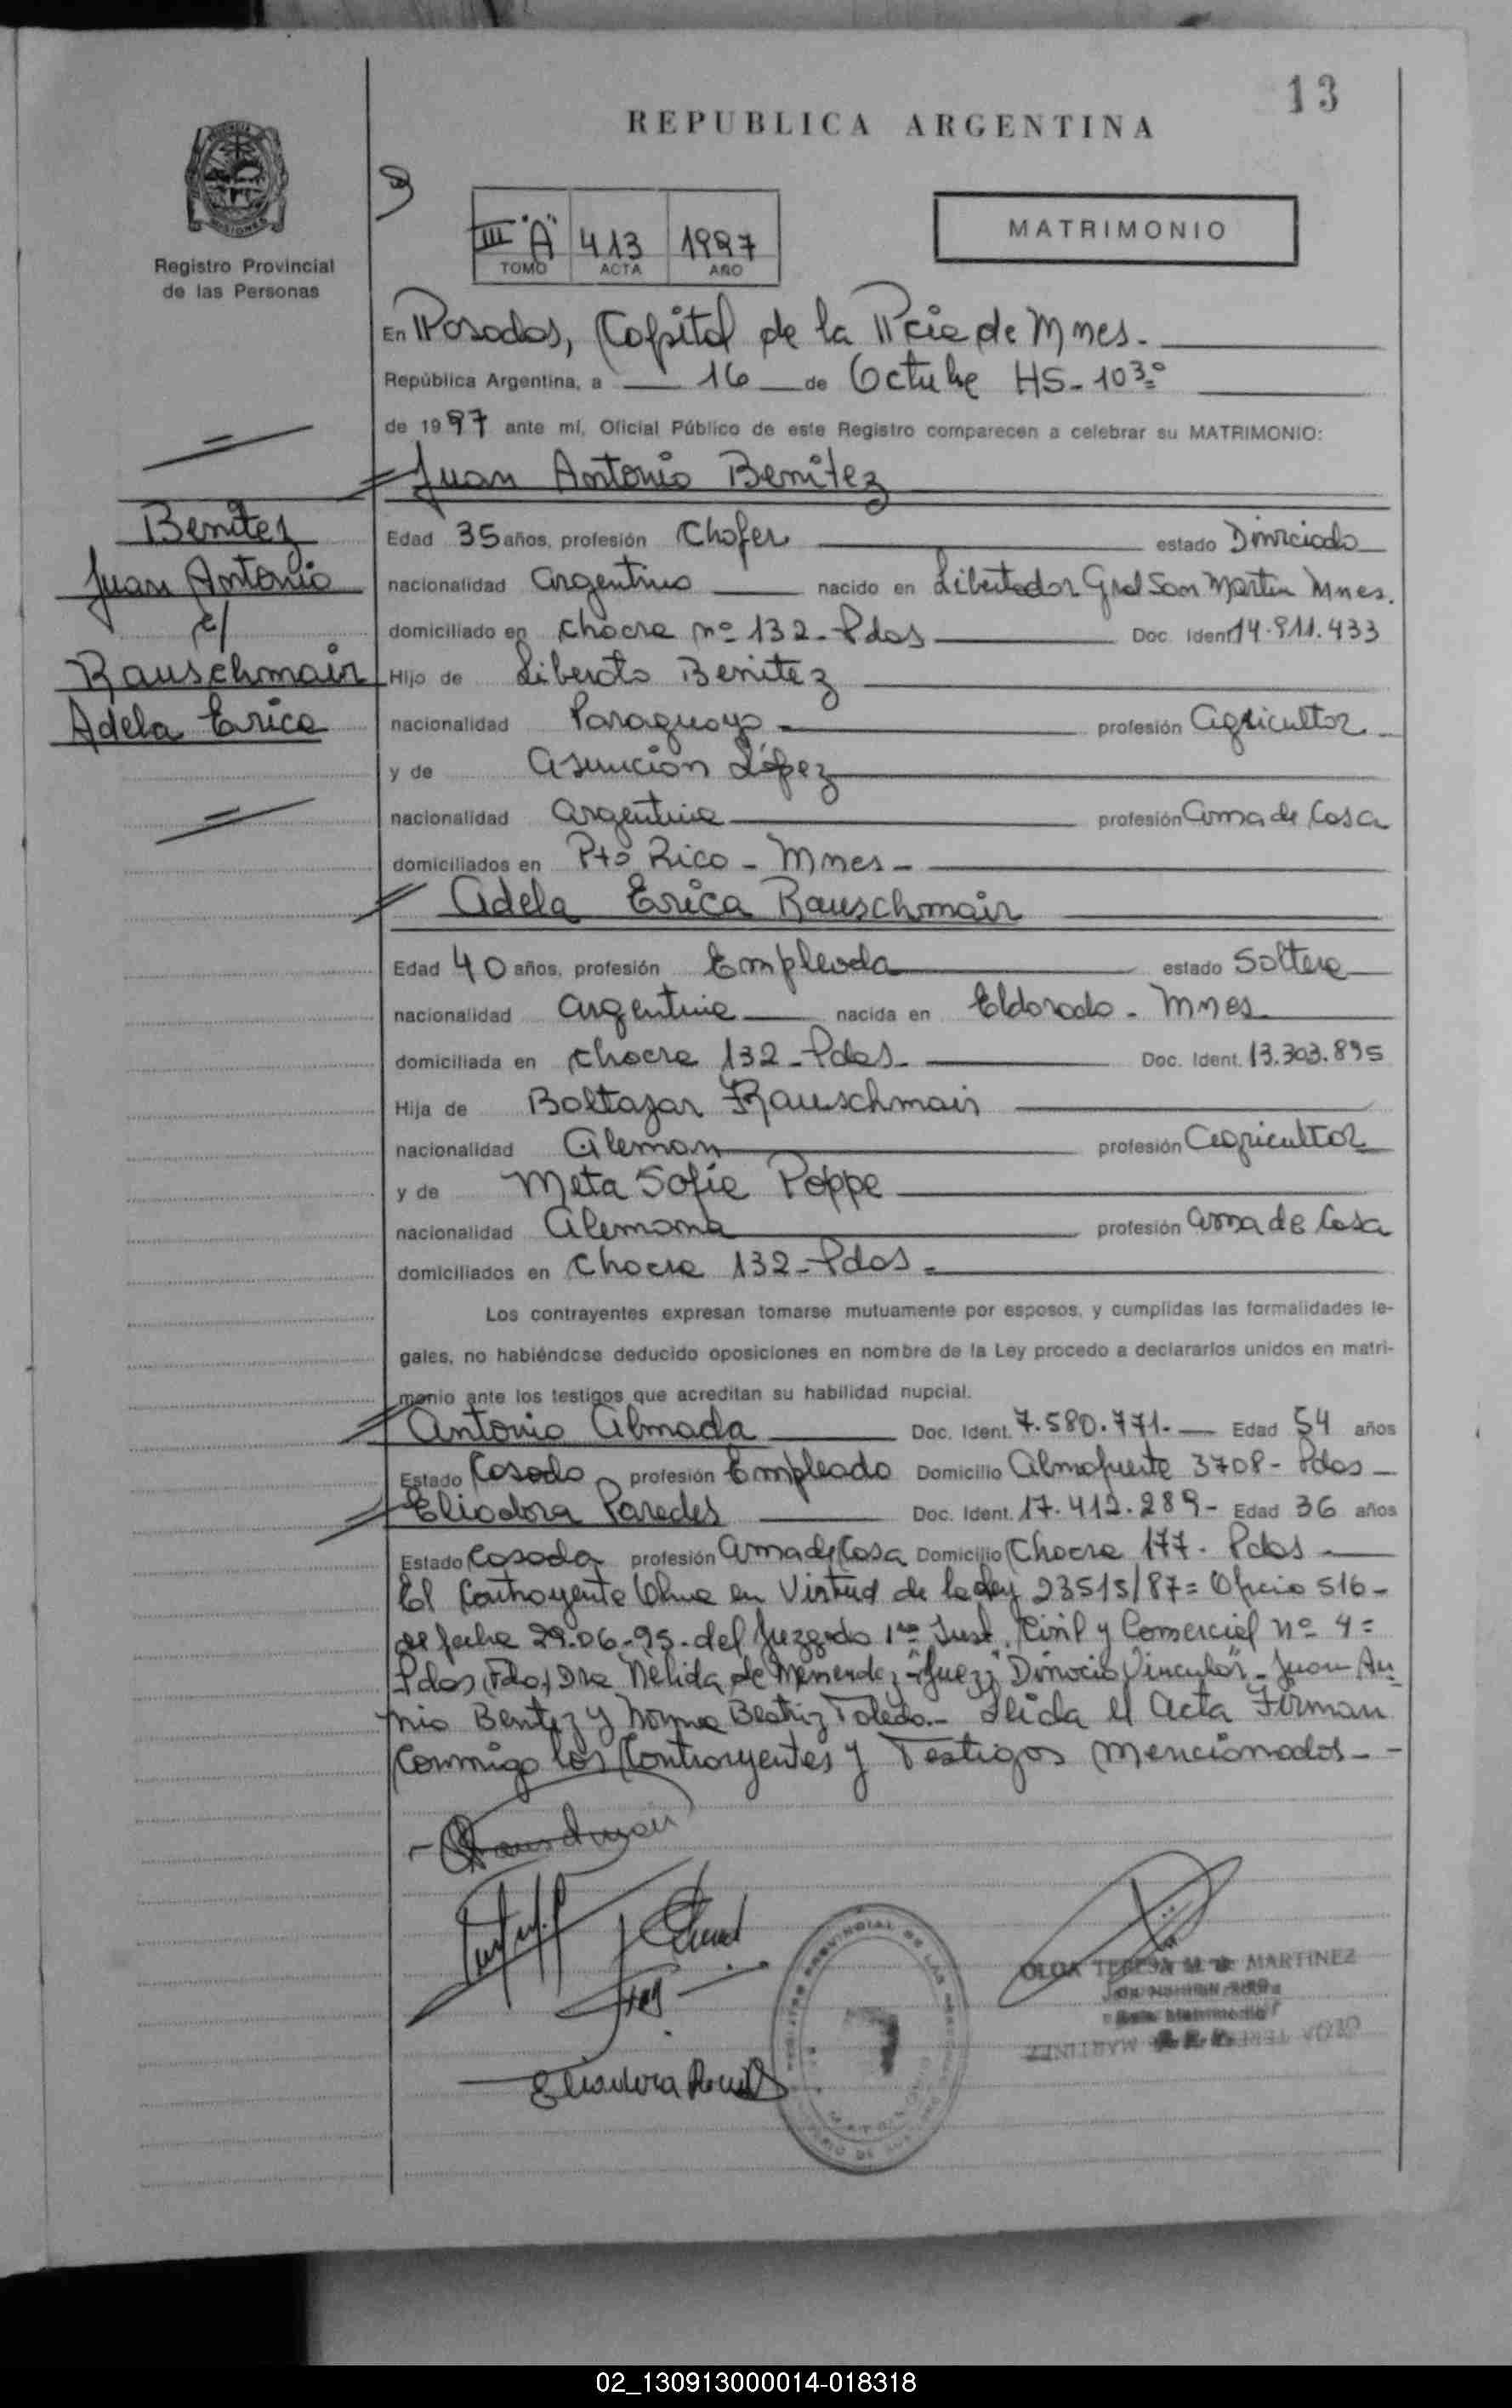 13
REPUBLICA ARGENTINA
MISIONES
Registro Provincial
de las Personas
III "A" 413 1997
TOMO ACTA AÑO
MATRIMONIO
En Posadas, Capital de la Pcia de Mnes.
República Argentina, a 16 de Octubre HS- 10 30
de 1997 ante mí, Oficial Público de este Registro comparecen a celebrar su MATRIMONIO:
Juan Antonio Benitez
Benitez
Juan Antonio
c/
Rauschmair
Adela Erica
Edad 35 años, profesión Chofer estado Divorciado
nacionalidad argentino nacido en Libertador Gral San Martin Mnes.
domiciliado en Chacra nº 132 - Pdas Doc. Ident. 14.911.433
Hijo de Liberato Benitez
nacionalidad Paraguayo profesión agricultor
y de Asunción López
nacionalidad argentina profesión ama de Casa
domiciliados en Pto Rico - Mnes -
Adela Erica Rauschmair
Edad 40 años, profesión Empleada estado Soltera
nacionalidad argentina nacida en Eldorado - Mnes
domiciliada en Chacra 132 - Pdas - Doc. Ident. 13.303.895
Hija de Baltazar Rauschmair
nacionalidad Aleman profesión Agricultor
y de Meta Sofie Poppe
nacionalidad Alemana profesión ama de Casa
domiciliados en Chacra 132 - Pdas -
Los contrayentes expresan tomarse mutuamente por esposos, y cumplidas las formalidades le-
gales, no habiéndose deducido oposiciones en nombre de la Ley procedo a declararlos unidos en matri-
monio ante los testigos que acreditan su habilidad nupcial.
Antonio Almada Doc. Ident. 7.580.771.- Edad 54 años
Estado Casado profesión Empleado Domicilio Almafuerte 3708 - Pdas -
Eliodora Paredes Doc. Ident. 17.412.289 - Edad 36 años
Estado Casada profesión ama de Casa Domicilio Chacra 177 - Pdas -
El Contrayente en Virtud de la Ley 23515/87 = Oficio 516 -
de fecha 29-06-95 - del Juzgado 1ra Inst. Civil y Comercial nº 4 =
Pdas (Fdo) Dra Nélida de Menendez - "Juez" "Divorcio Vincular" - Juan An-
nio Benitez y Norma Beatriz Toledo.- Leida el Acta Firman
Conmigo los Contrayentes y Testigos mencionados - -
Rauschmair
Eliodora
OLGA TERESA M. DE MARTINEZ